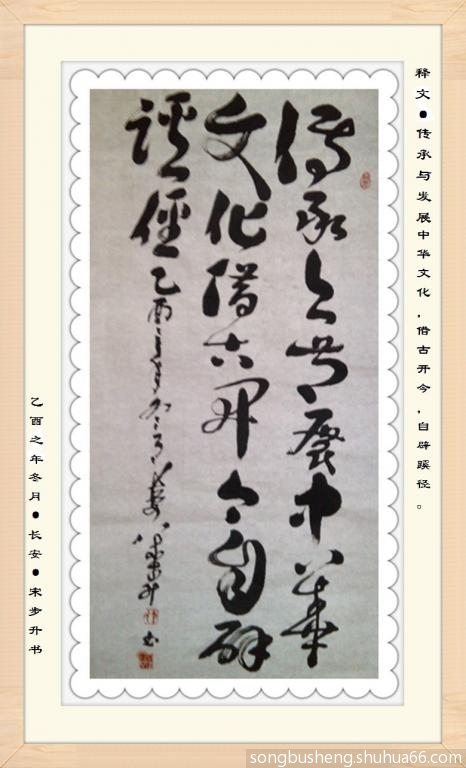 释文●传承与发展中华文化，借古开今，自辟蹊径。
傳承与发展中華
文化借古开今自辟
蹊徑
乙酉之年冬月長安宋步升书
乙酉之年冬月●长安●宋步升书
songbusheng.shuhua66.com